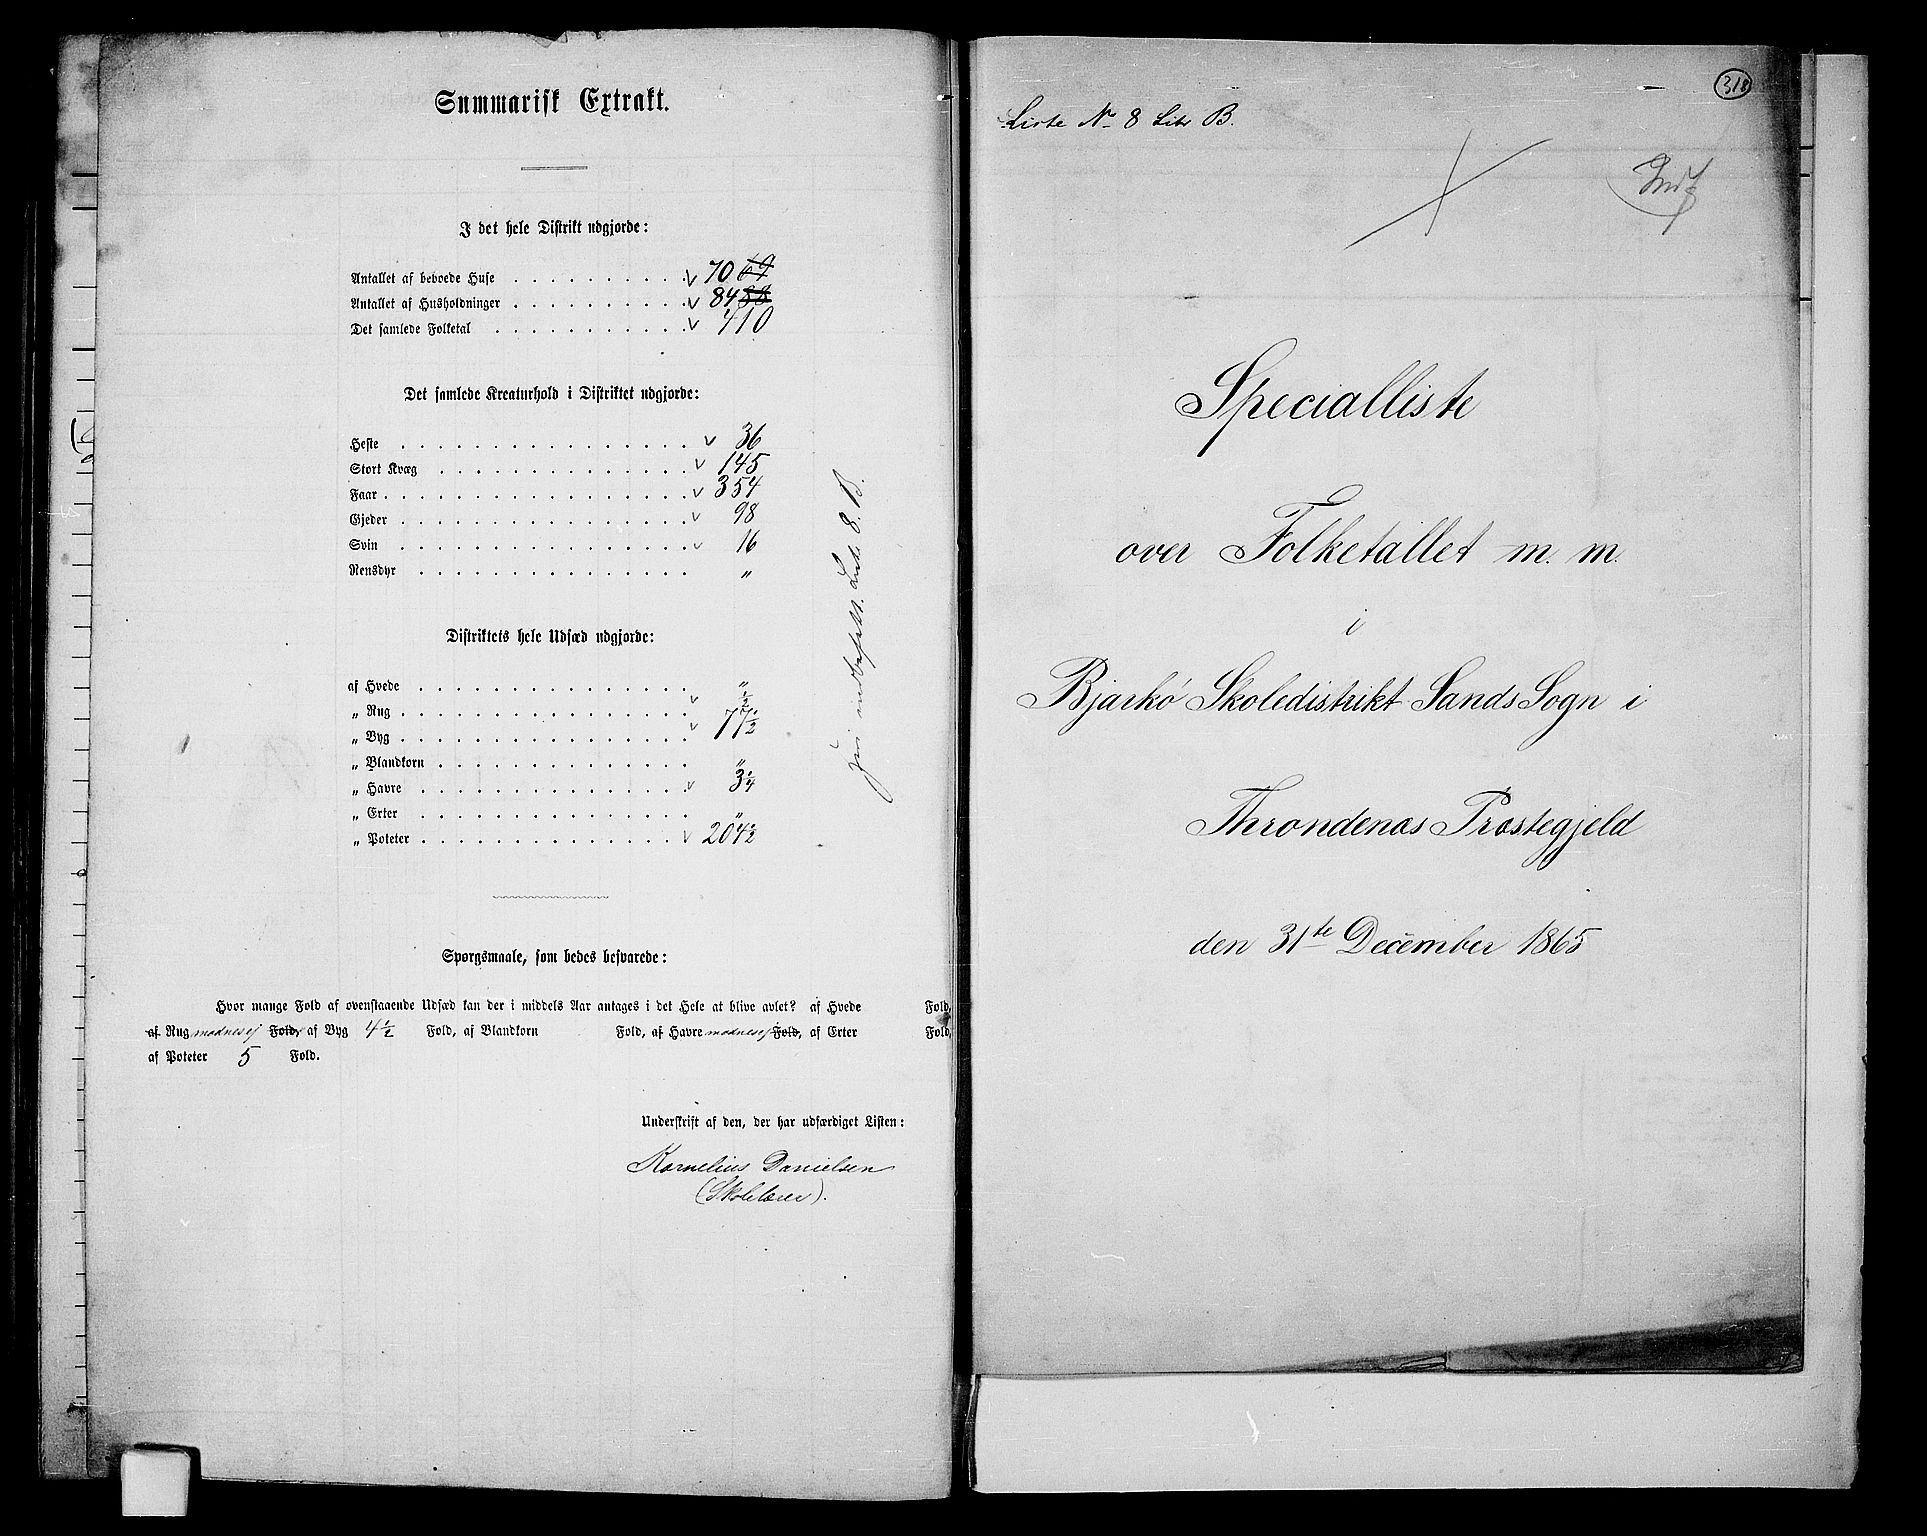 Summarisk Extrakt.
I det hele Distrikt udgjorde:
Antallet af beboede Huse . . . . . . . . . . . 70 69
Antallet af Husholdninger . . . . . . . . . . . 84 88
Det samlede Folketal . . . . . . . . . . . . 410
Det samlede Kreaturhold i Distriktet udgjorde:
Heste . . . . . . . . . . . . . . . . 36
Stort Kvæg . . . . . . . . . . . . . . 145
Faar . . . . . . . . . . . . . . . . . 354
Gjeder . . . . . . . . . . . . . . . . 98
Svin . . . . . . . . . . . . . . . . 16
Rensdyr . . . . . . . . . . . . . . . "
Distriktets hele Udsæd udgjorde:
af Hvede . . . . . . . . . . . . . . . "
„ Rug . . . . . . . . . . . . . . . . 1/2
„ Byg . . . . . . . . . . . . . . . . 77 1/2
„ Blandkorn . . . . . . . . . . . . . . "
„ Havre . . . . . . . . . . . . . . . 3 1/4
„ Erter . . . . . . . . . . . . . . . "
„ Poteter . . . . . . . . . . . . . . . 204 1/2
Spørgsmaale, som bedes besvarede:
Hvor mange Fold af ovenstaaende Udsæd kan der i middels Aar antages i det Hele at blive avlet? af Hvede Fold,
af Rug modnes ej Fold, af Byg 4 1/2 Fold, af Blandkorn Fold, af Havre modnes ej Fold, af Erter Fold,
af Poteter 5 Fold.
Underskrift af den, der har udfærdiget Listen:
Kornelius Danielsen
(Skolelærer).
Liste 8. B.
318
Liste No 8 Litr B.
Specialliste
over Folketallet m. m.
i
Bjarkö Skoledistrikt Sands Sogn i
Throndenæs Præstegjeld
den 31te December 1865